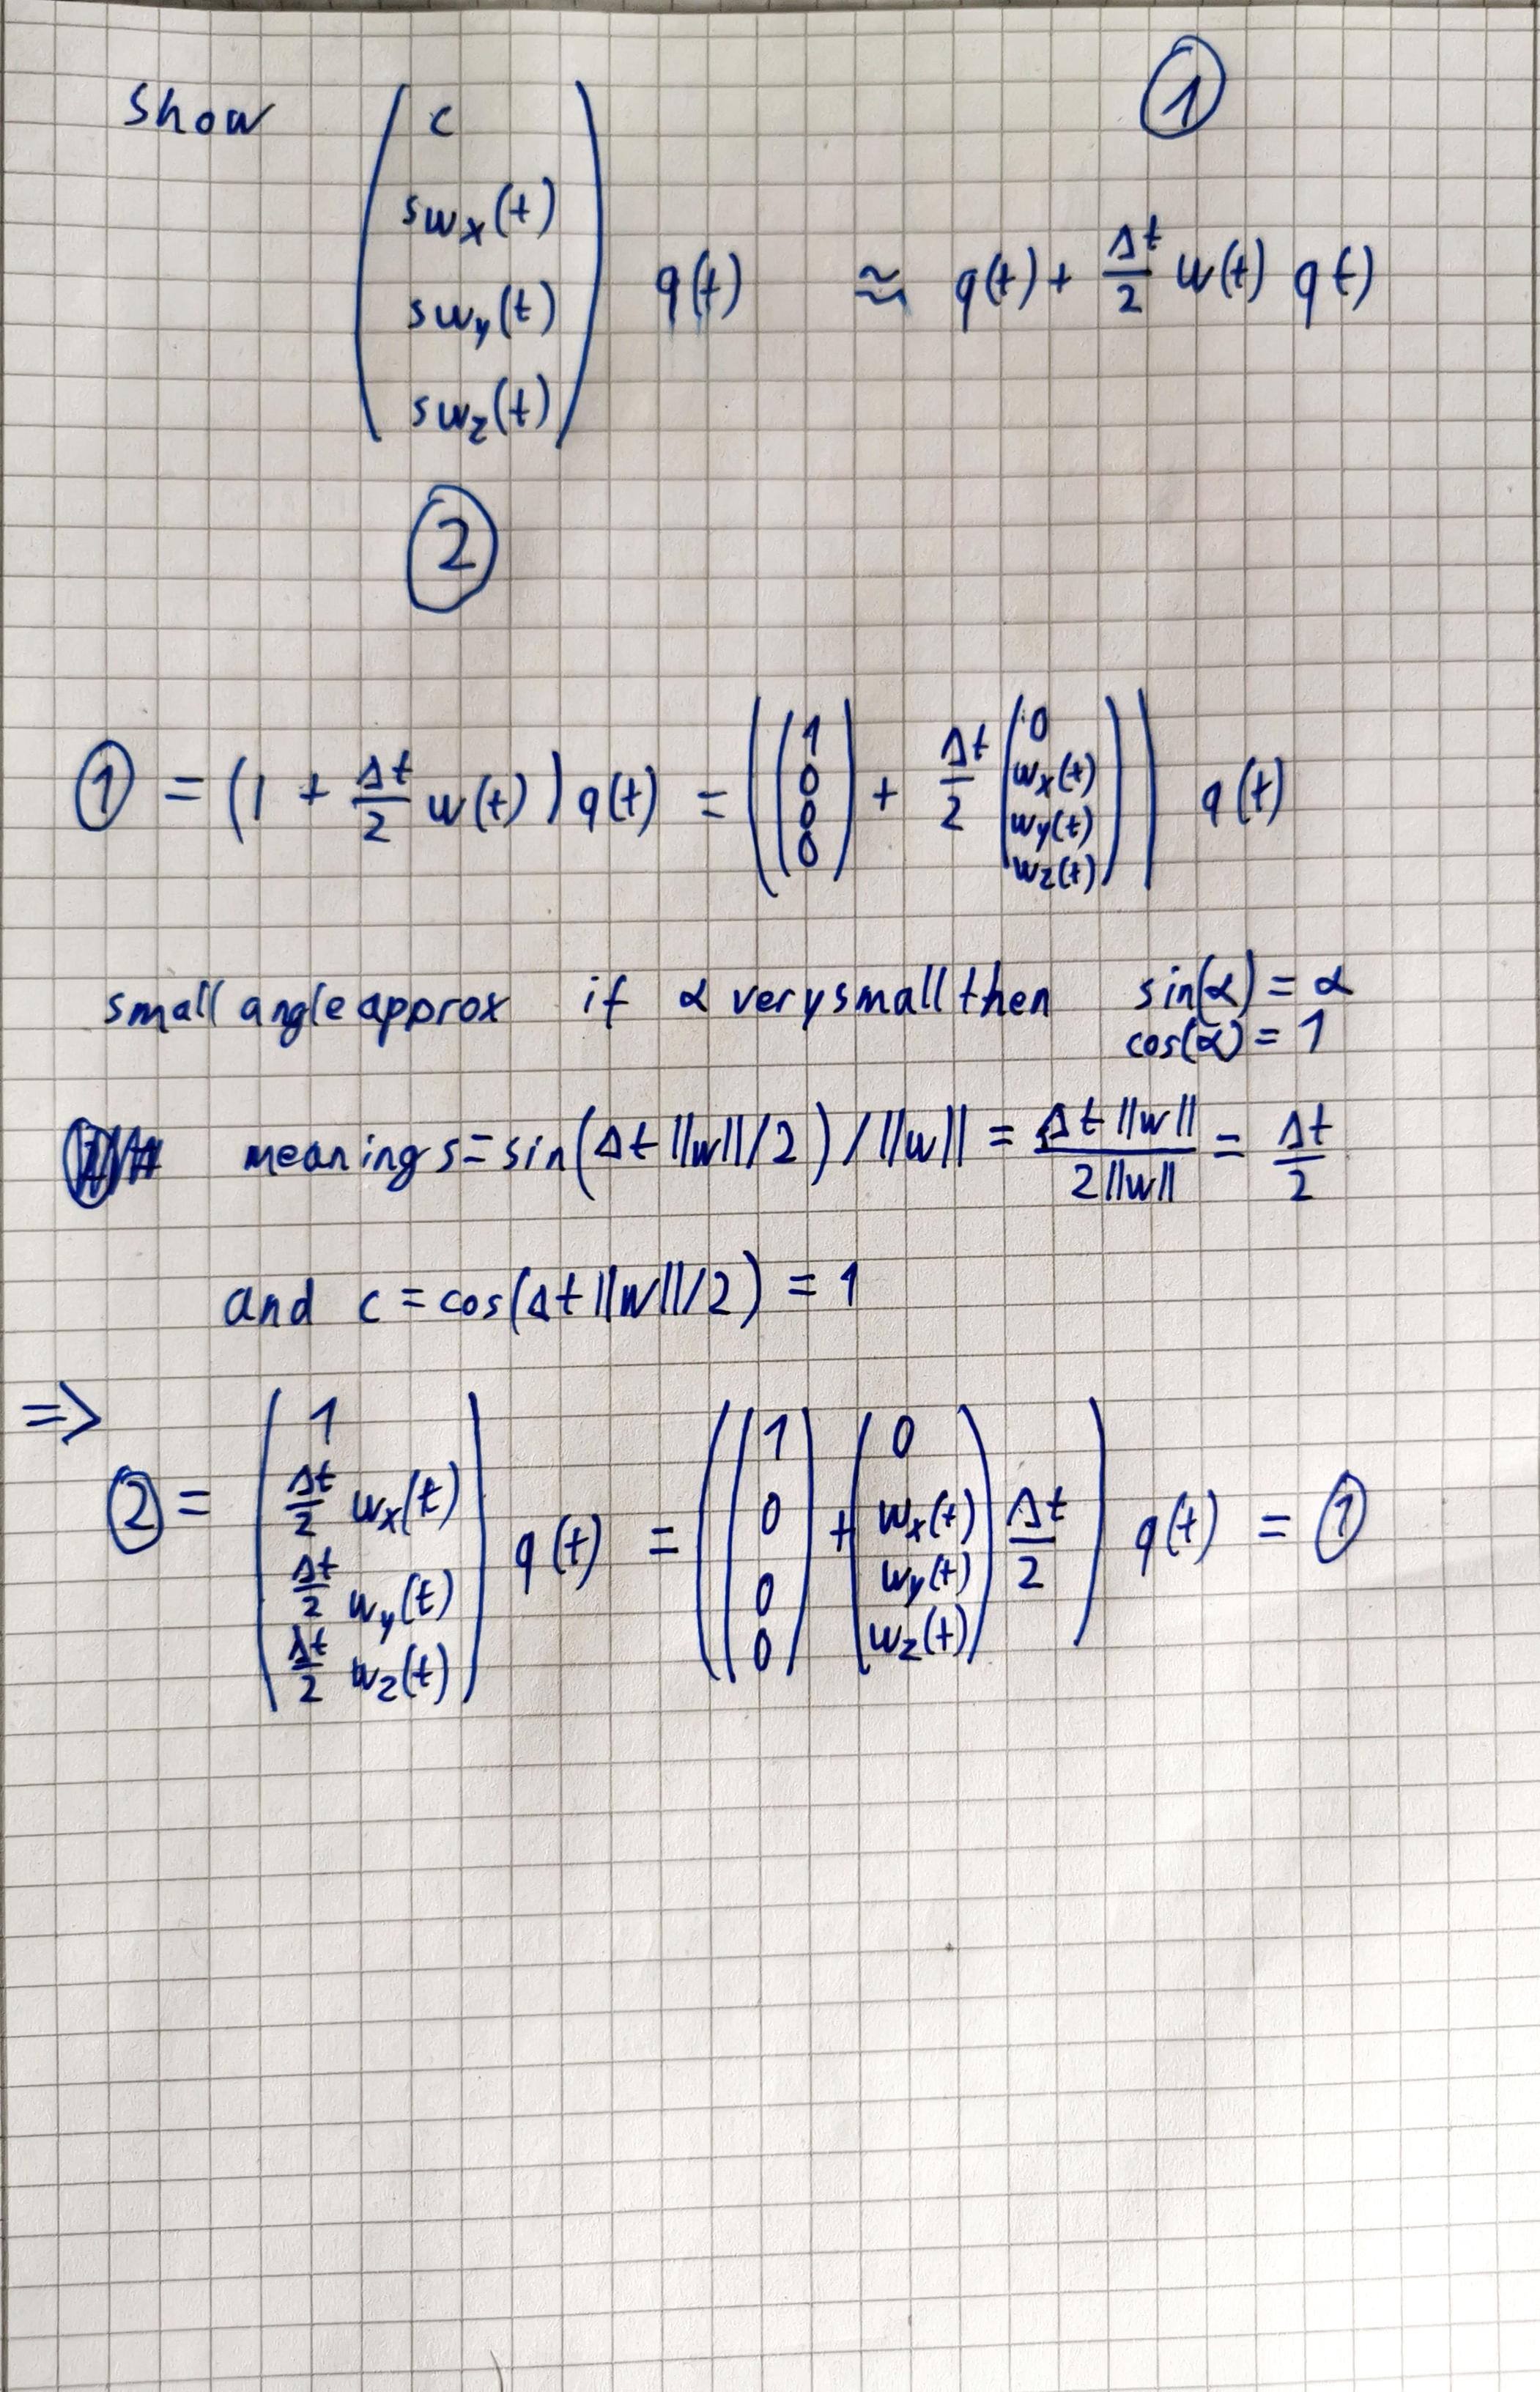 ①
Show ( c
swx(t)
swy(t)
swz(t) ) q(t) ≈ q(t) + Δt/2 w(t) q t)
②
① = (1 + Δt/2 w(t)) q(t) = ( ( 1 0 0 0 ) + Δt/2 ( 0 wx(t) wy(t) wz(t) ) ) q(t)
small angle approx if α very small then sin(α) = α
cos(α) = 1
meaning s = sin(Δt ||w||/2) / ||w|| = Δt ||w|| / 2 ||w|| = Δt/2
and c = cos(Δt ||w||/2) = 1
=>
② = ( 1 Δt/2 wx(t) Δt/2 wy(t) Δt/2 wz(t) ) q(t) = ( ( 1 0 0 0 ) + ( 0 wx(t) wy(t) wz(t) ) Δt/2 ) q(t) = ①